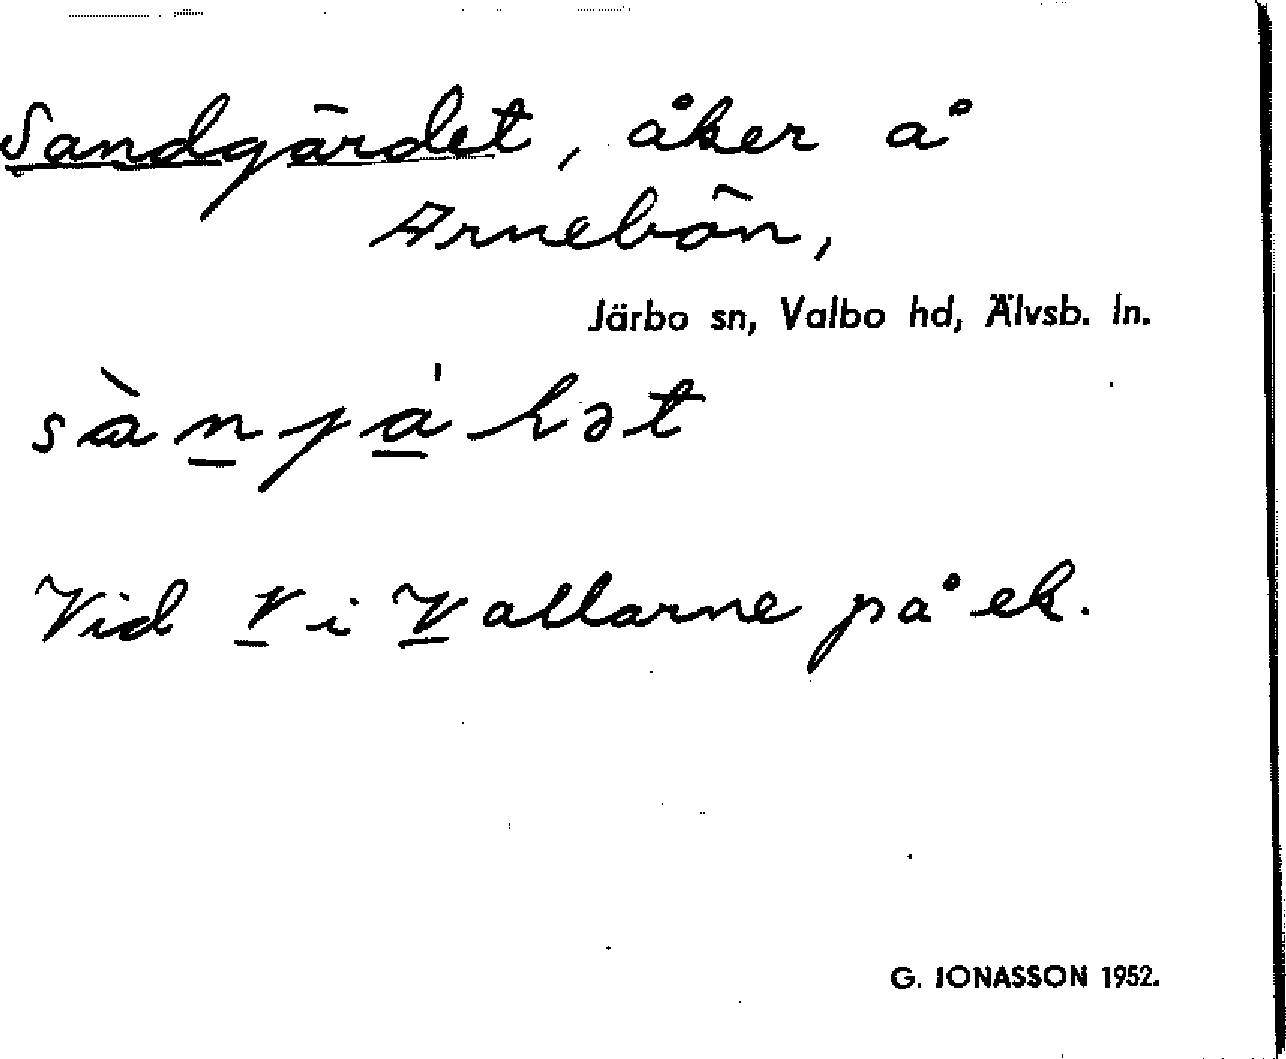 Sandgärdet, åker å
Arnebön,
Järbo sn, Valbo hd, Älvsb. ln.
Vid V i Vallarne på ek.
G. JONASSON 1952.